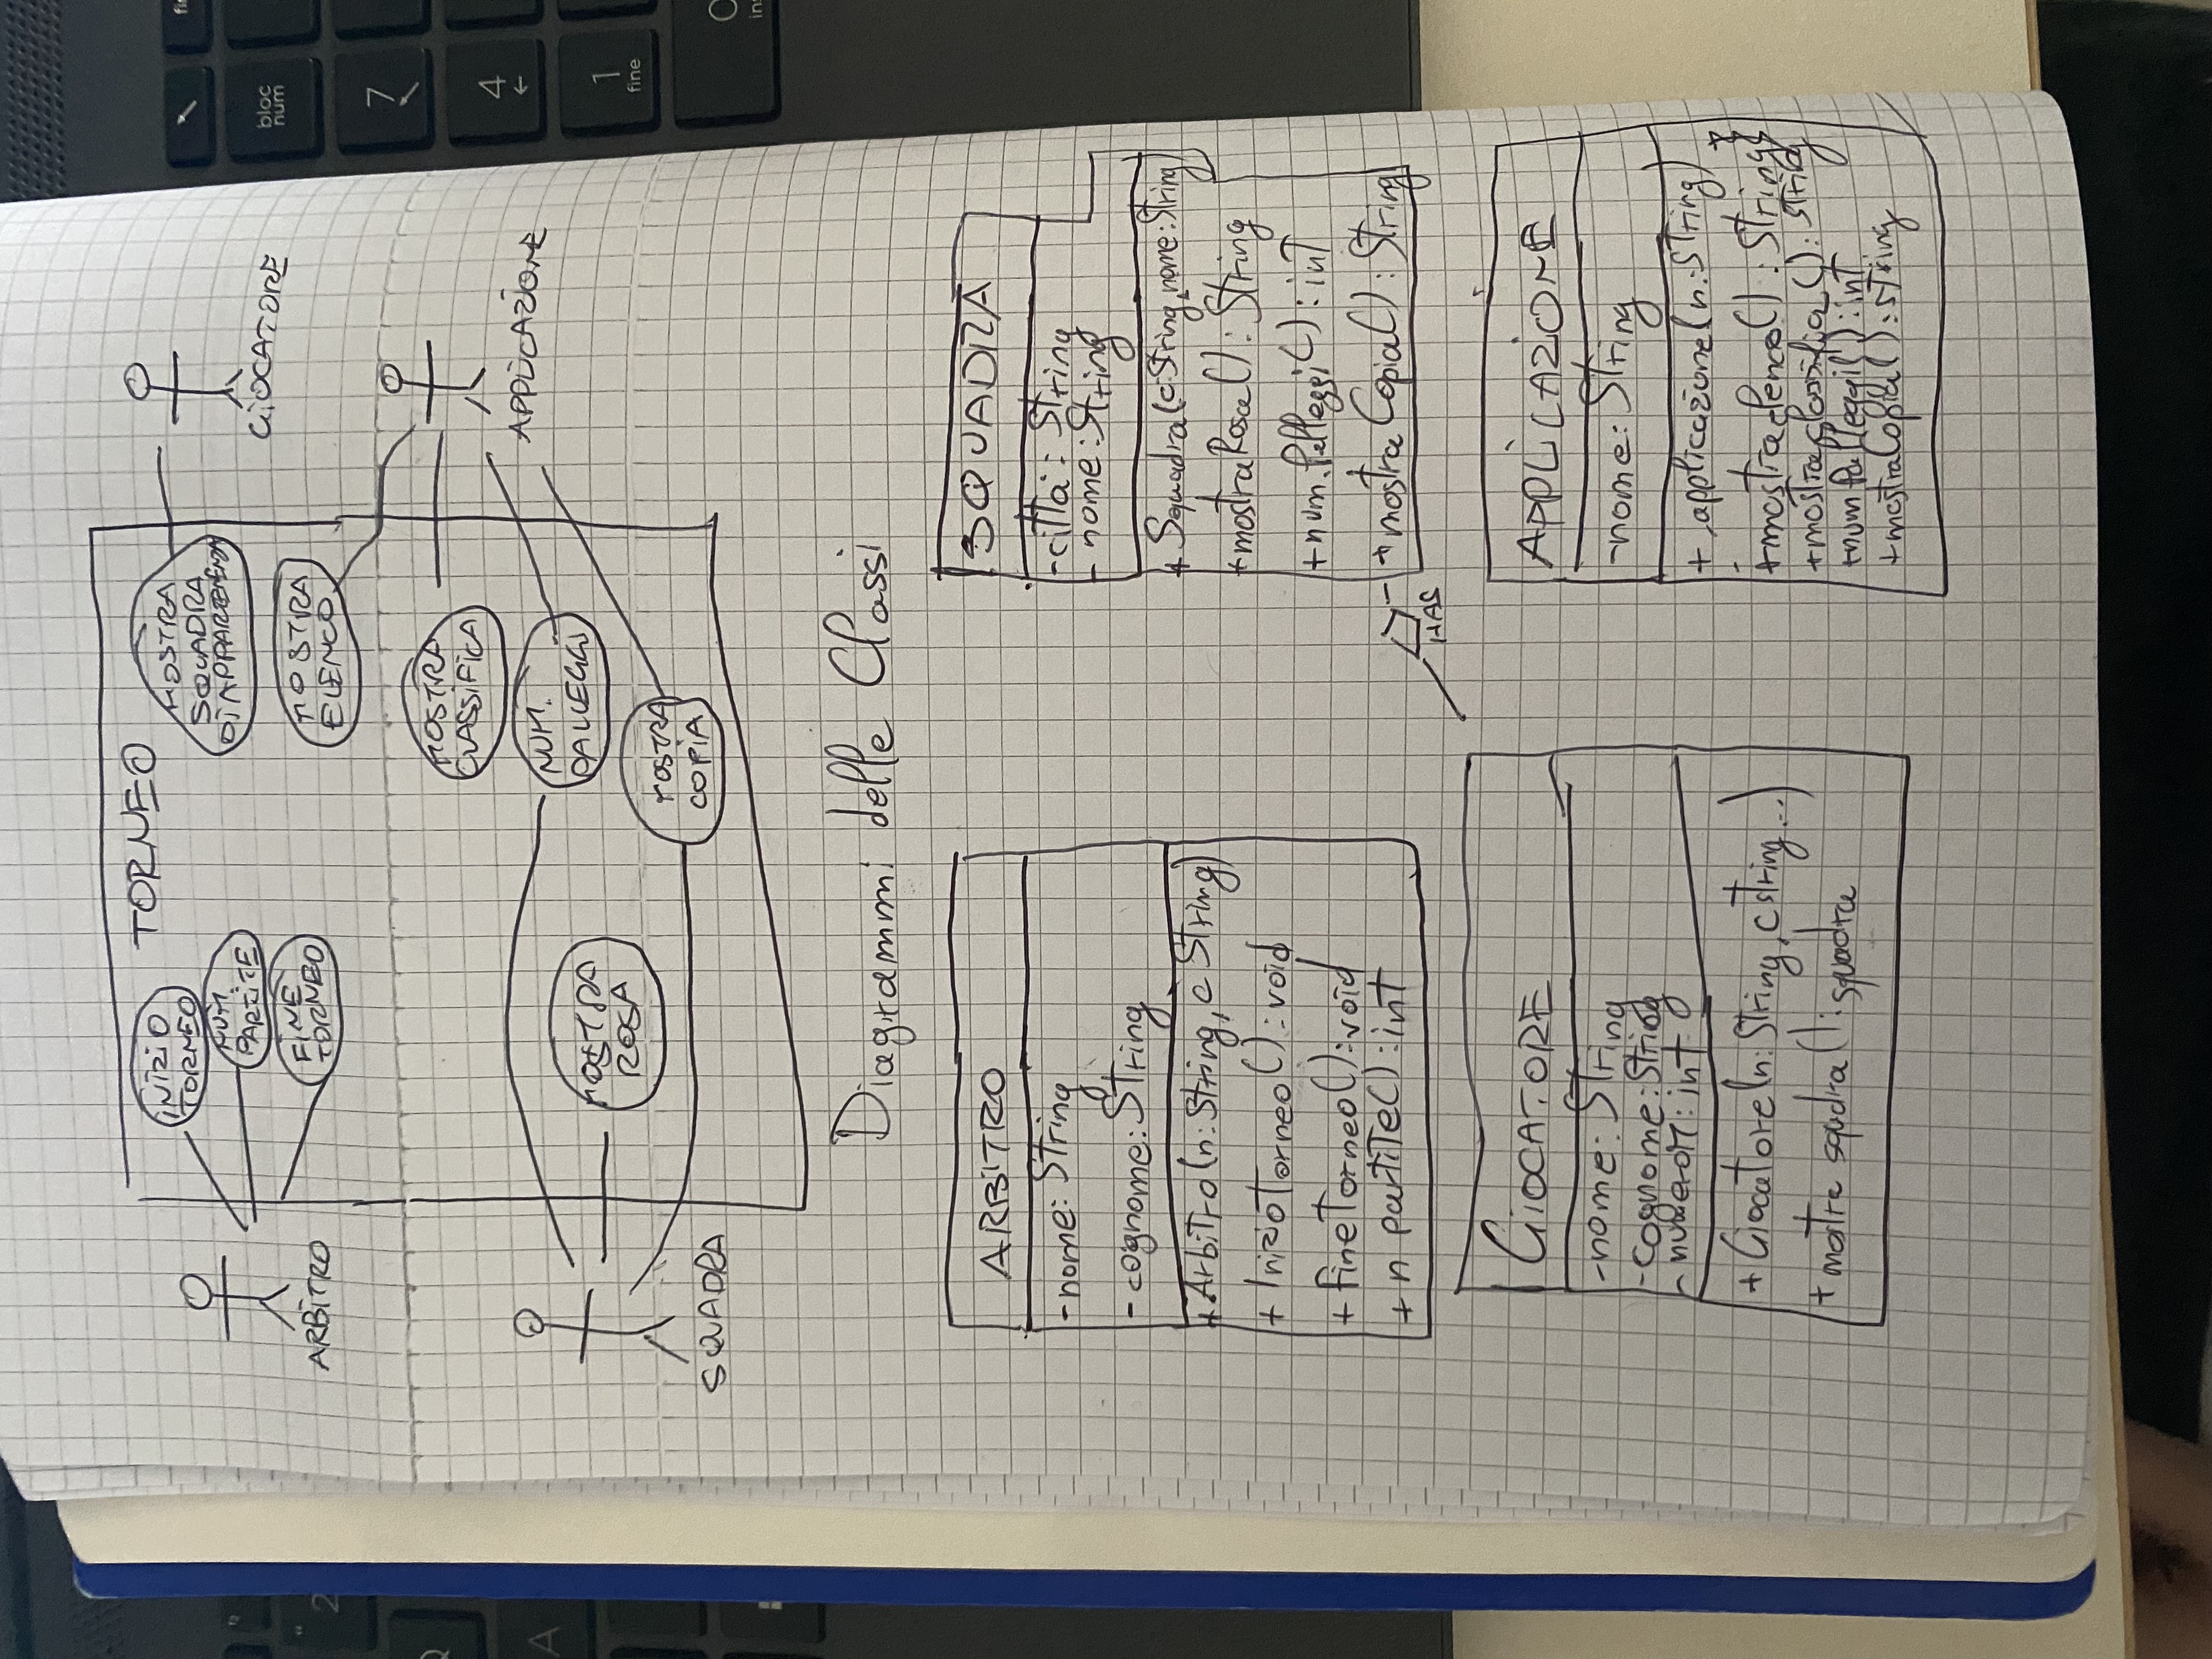 TORNEO
INIZIO
TORNEO
NUM.
PARTITE
FINE
TORNEO
ARBITRO
MOSTRA
SQUADRA
DI APPARTENENZA
GIOCATORE
MOSTRA
ELENCO
MOSTRA
CLASSIFICA
APPLICAZIONE
NUM.
PALLEGGI
MOSTRA
ROSA
MOSTRA
COPIA
SQUADRA
Diagrammi delle Classi
ARBITRO
-nome: String
-cognome: String
+Arbitro(n: String, c String)
+ InizioTorneo(): void
+ fineTorneo(): void
+ n partite(): int
SQUADRA
-città: String
- nome: String
+ Squadra(c:String, nome:String)
+mostraRosa(): String
+num.Palleggi(): int
+mostraCopia(): String
HAS
GIOCATORE
-nome: String
-cognome: String
- : int
+ Giocatore(n: String, c string...)
+ mostra squdra(): squadra
APPLICAZIONE
-nome: String
+ applicazione(n: String)
+mostraelenco(): String
+mostraclassifica(): string
+numPalleggi(): int
+mostraCopia(): string